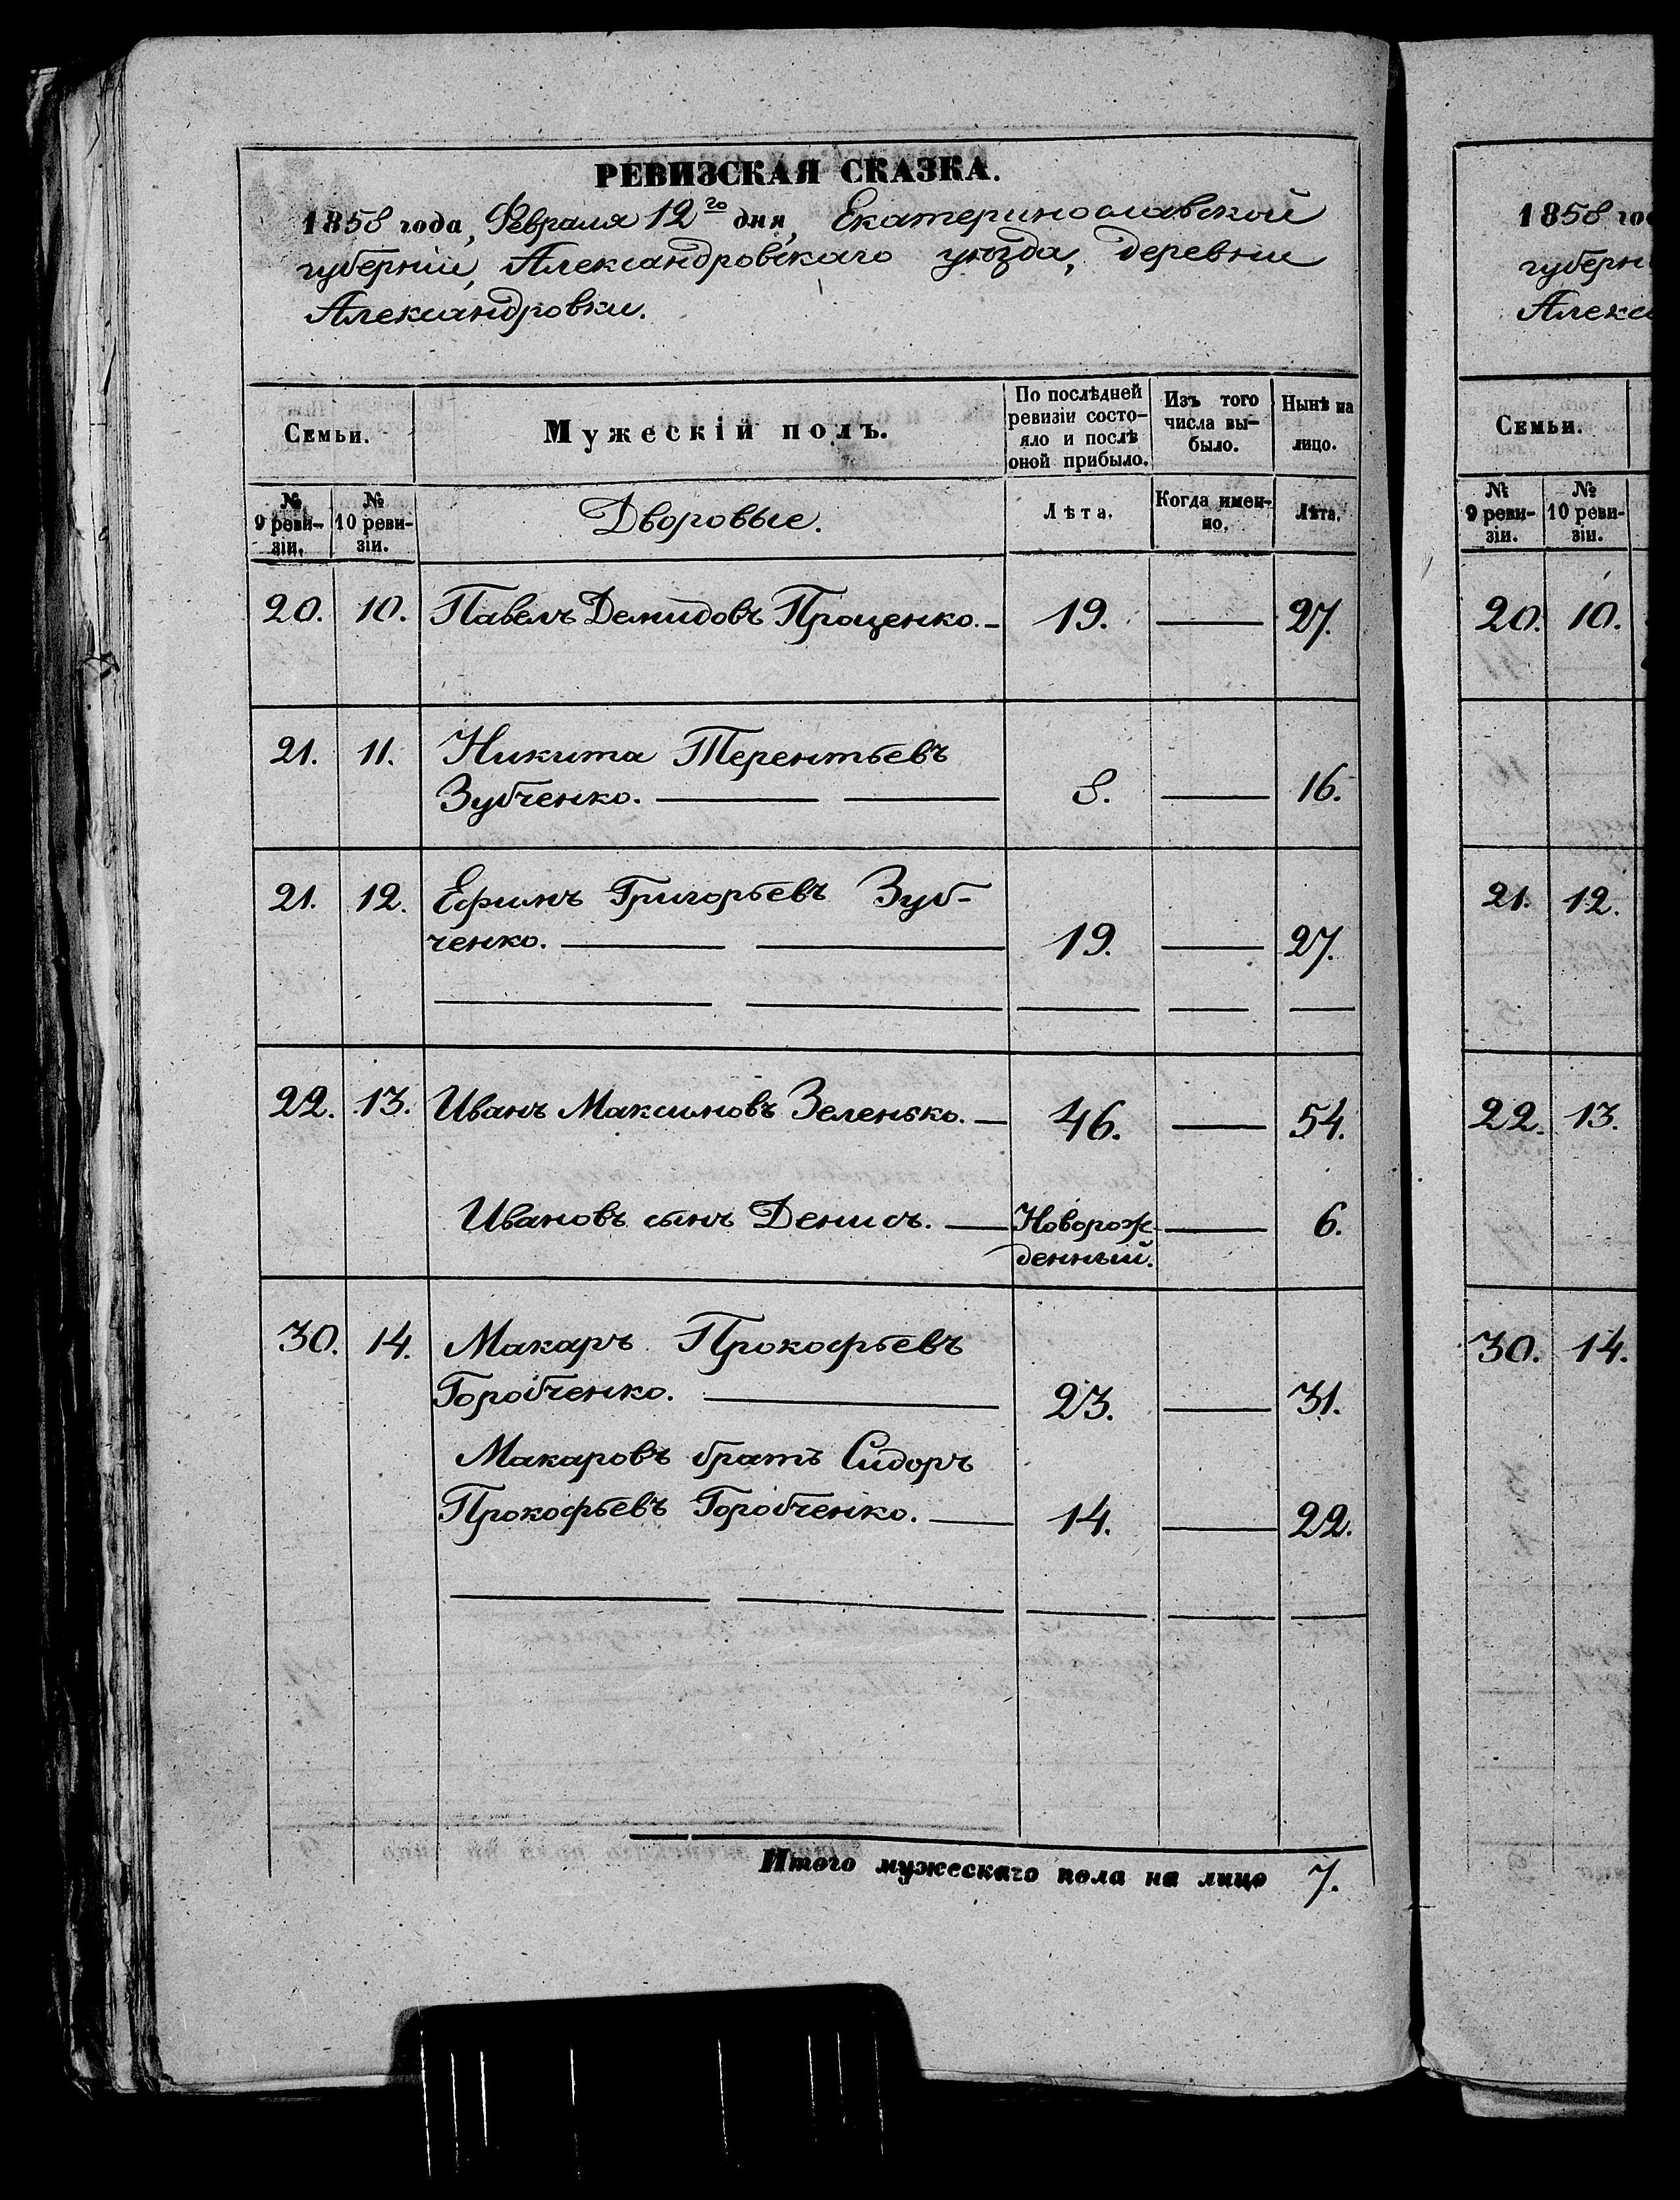 РЕВИЗСКАЯ СКАЗКА.
1858 года, Февраля 12го дня, Екатеринославской
губерніи, Александровскаго уѣзда, деревни
Александровки.
Семьи.
Мужескій полъ.
По послѣдней
ревизіи состо-
яло и послѣ
оной прибыло.
Изъ того
числа вы-
было.
Нынѣ на
лицо.
№
9 реви-
зіи.
№
10 реви-
зіи.
Дворовые.
Лѣта.
Когда имен-
но.
Лѣта.
20. 10. Павелъ Демидовъ Проценко. 19. 27.
21. 11. Никита Терентьевъ
Зубченко. 8. 16.
21. 12. Ефимъ Григорьевъ Зуб-
ченко. 19. 27.
22. 13. Иванъ Максимовъ Зеленько. 46. 54.
Ивановъ сынъ Денисъ. Новорож- 6.
денный.
30. 14. Макаръ Прокофьевъ
Горобченко. 23. 31.
Макаровъ братъ Сидоръ
Прокофьевъ Горобченко. 14. 22.
Итого мужескаго пола на лицо 7.
1858 го
губерн
Алекс
Семьи.
№
9 реви-
зіи.
№
10 реви-
зіи.
20. 10.
21. 12.
22. 13.
30. 14.